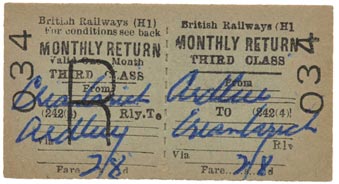 British Railways (H1)
For conditions see back
MONTHLY RETURN
Valid One Month
THIRD CLASS
From
(242(4) Rly.To
Ardlui
Via
Fare 2/8
034
R
British Railways (H1
MONTHLY RETURN
THIRD CLASS
From
Ardlui
TO (242(4)
Crianlarich
Rly
Via
Fare 2/8
034